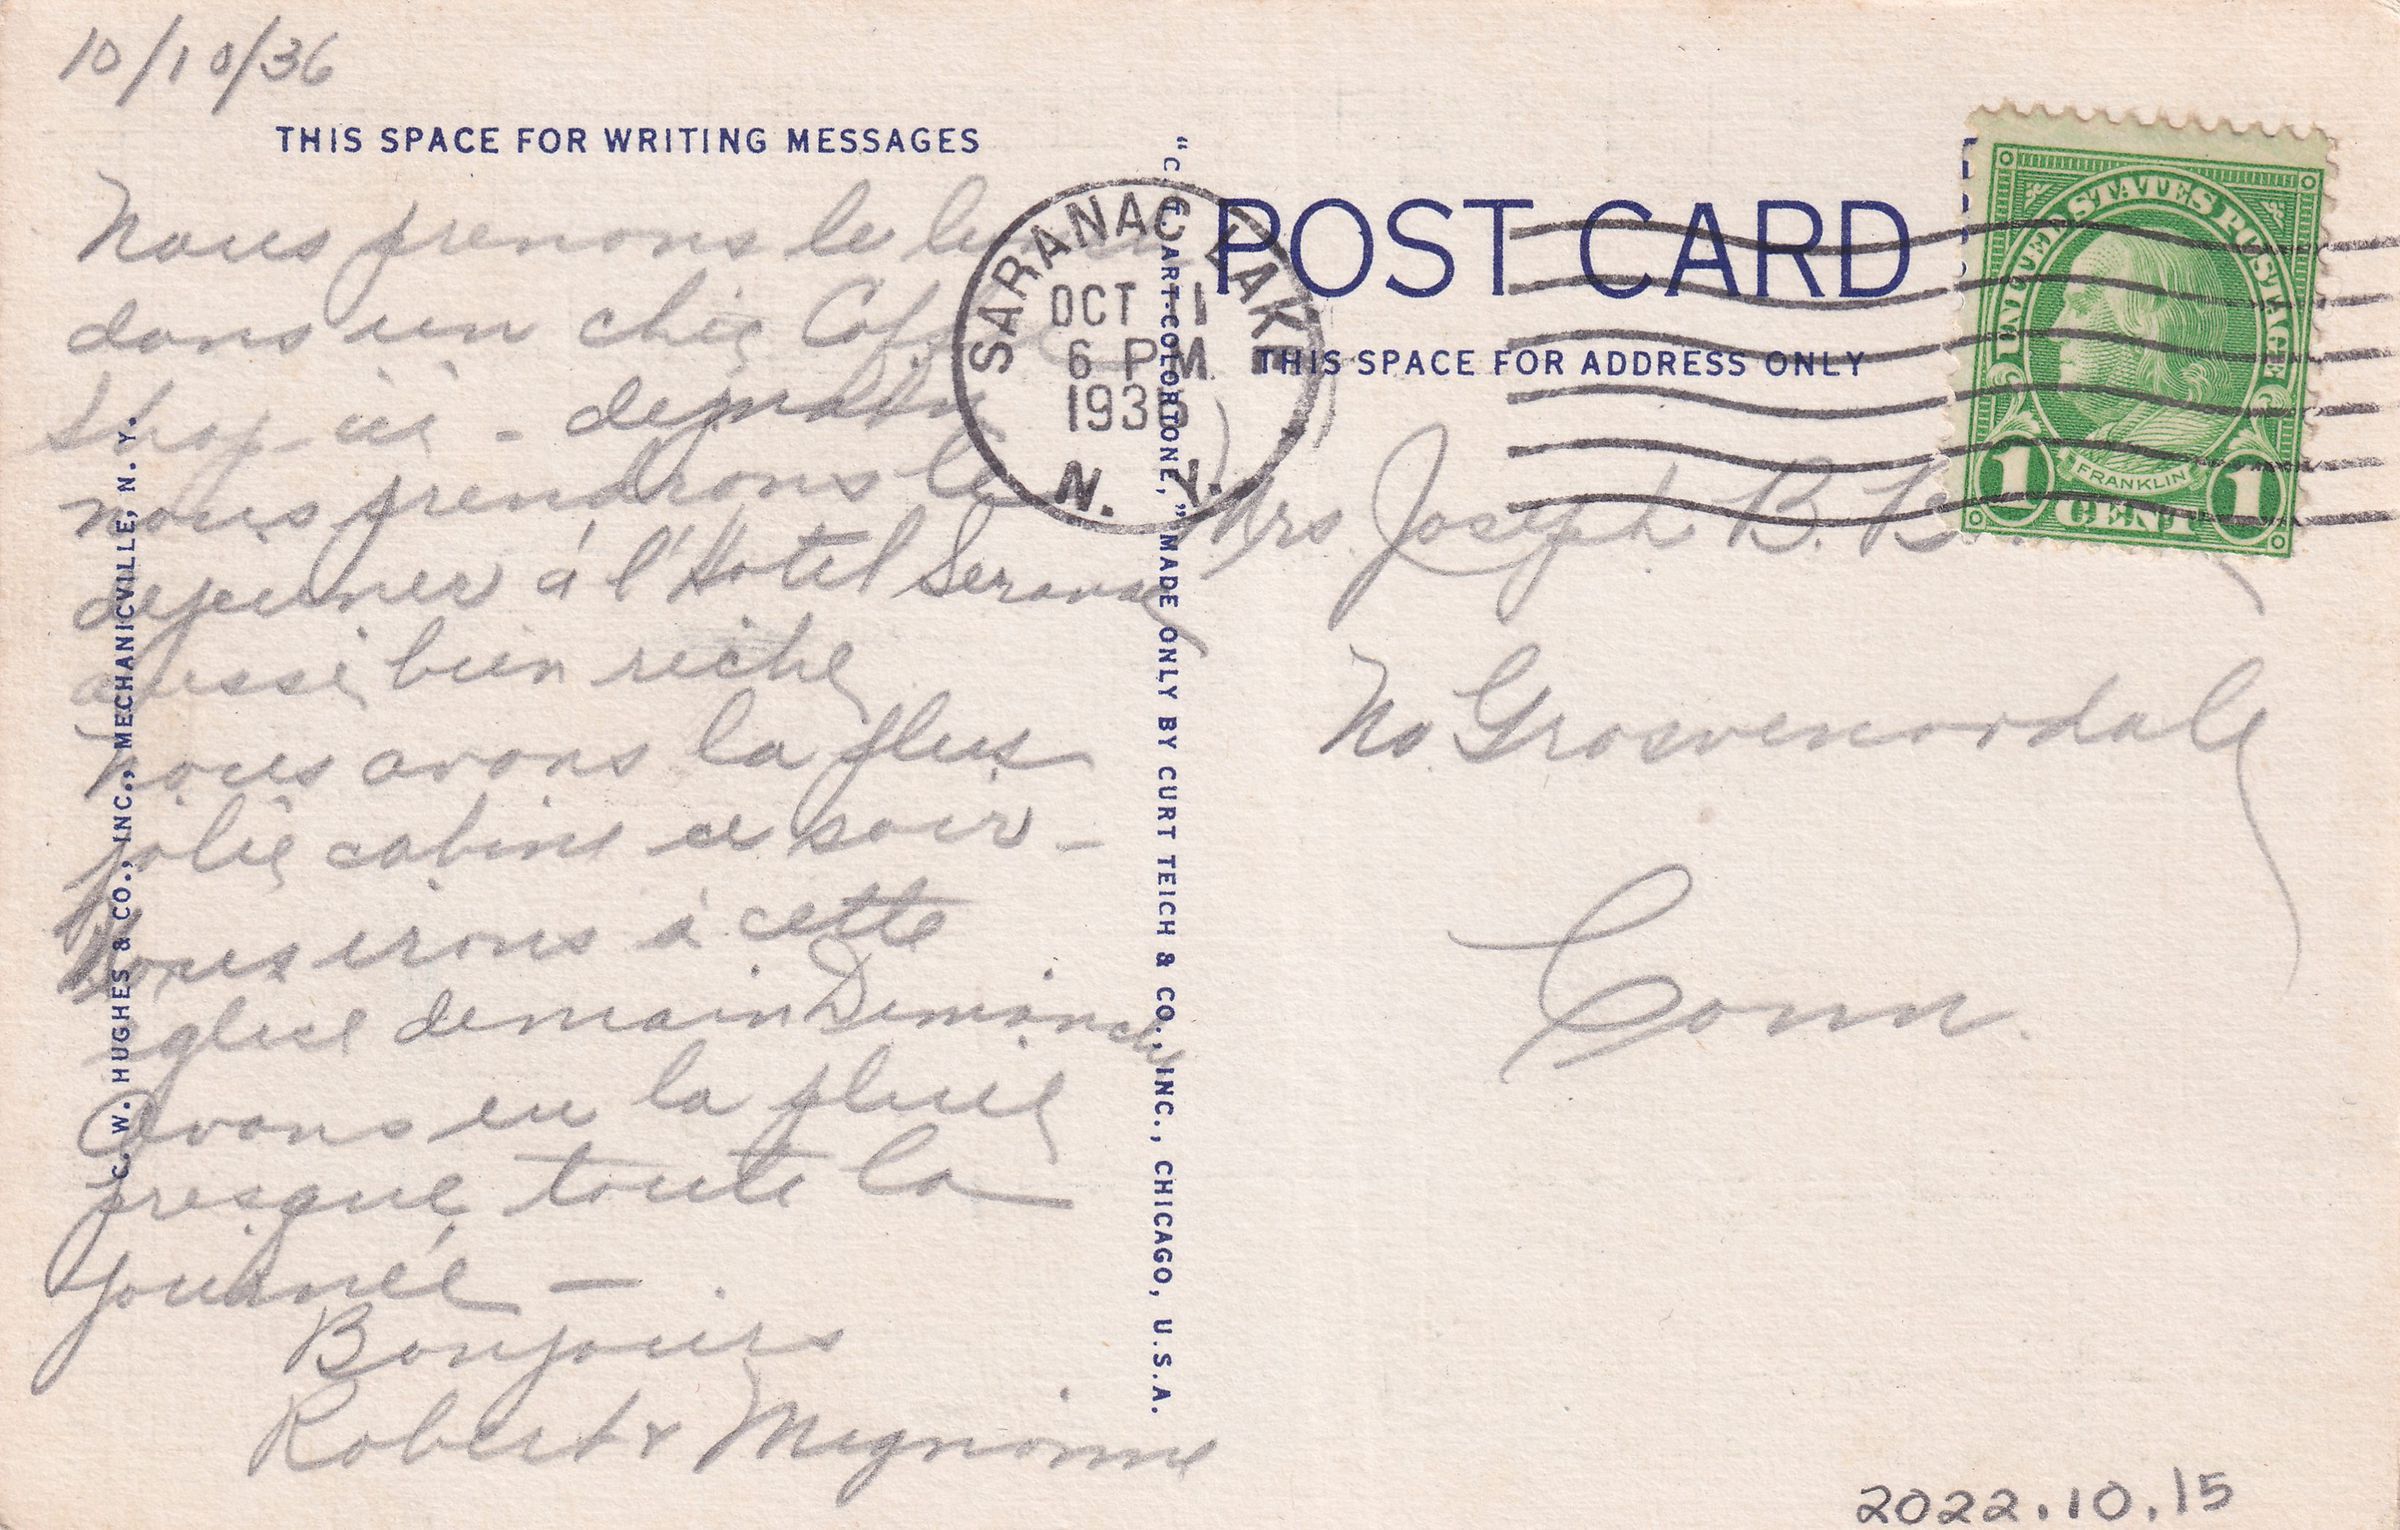 10/10/36
THIS SPACE FOR WRITING MESSAGES
Nous prenons le
dans un chic
shop ici - demain
nous prendrons le
dejeuner à l'Hotel Seranac
aussi bien riche
Nous avons la plus
jolie cabine ce soir -
Nous irons à cette
eglise demain Dimanche
Avons eu la pluie
presque toute la
journée -
Bonjours
Robert & Mignonne
C. W. HUGHES & CO., INC., MECHANICVILLE, N. Y.
"C. T. ART-COLORTONE," MADE ONLY BY CURT TEICH & CO., INC., CHICAGO, U.S.A.
SARANAC LAKE
OCT 1
6 PM
1936
N. Y.
POST CARD
THIS SPACE FOR ADDRESS ONLY
UNITED STATES POSTAGE
FRANKLIN
1 CENT 1
Mrs. Joseph B.
No. Grosvenordale
Conn.
2022.10.15